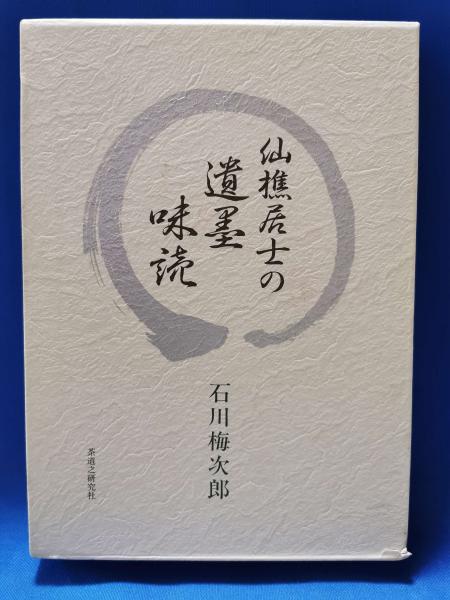 仙樵居士の
遺墨
味読
石川梅次郎
茶道之研究社